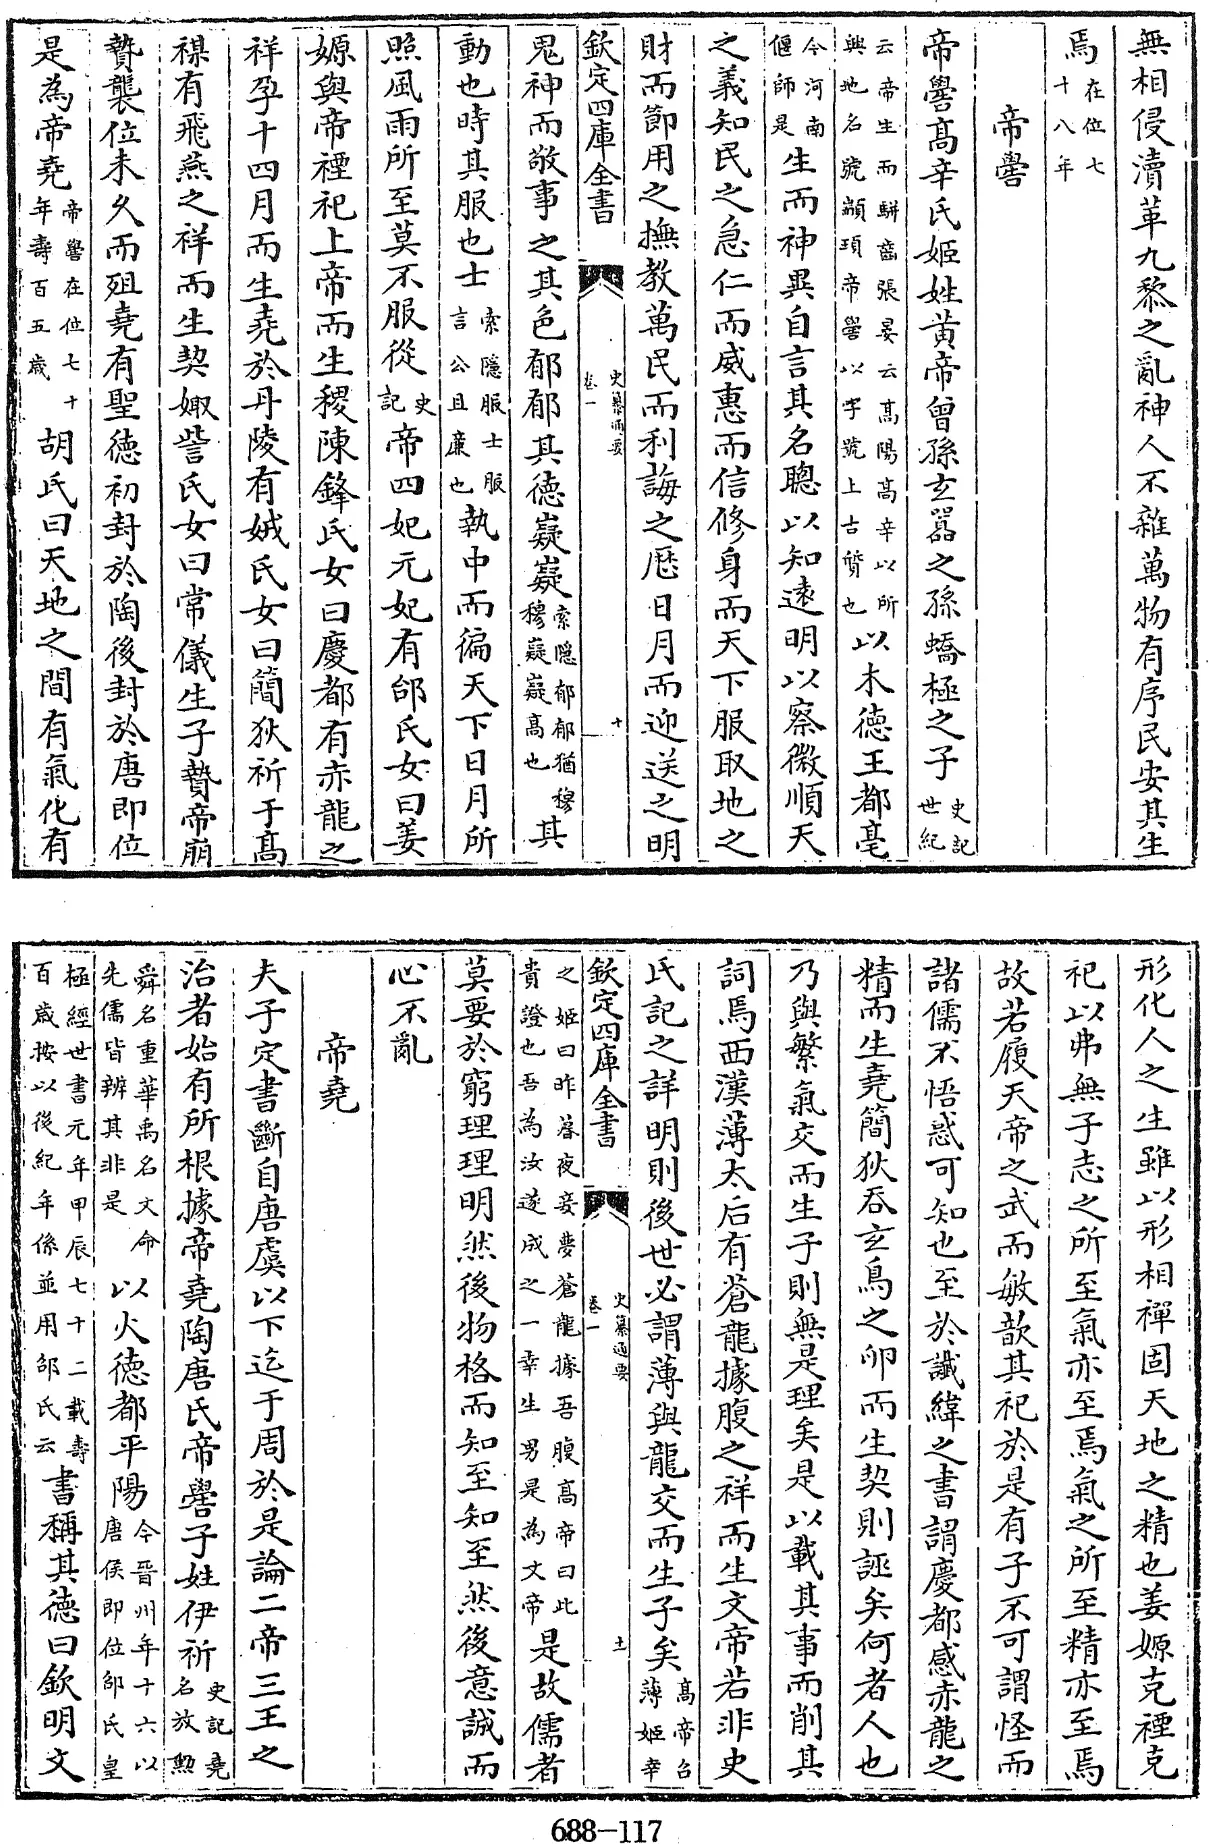 無相侵瀆革九黎之亂神人不雜萬物有序民安其生
焉在位七十八年
帝嚳
帝嚳髙辛氏姬姓黄帝曾孫玄囂之孫蟜極之子史記世紀
云帝生而駢齒張晏云髙陽髙辛以所興地名號顓頊帝嚳以字號上古質也以木徳王都亳
今河南偃師是生而神異自言其名聰以知逺明以察微順天
之義知民之急仁而威惠而信修身而天下服取地之
財而節用之撫教萬民而利誨之厯日月而迎送之明
欽定四庫全書
史纂通要
卷一
十
鬼神而敬事之其色郁郁其徳嶷嶷索隠郁郁猶穆穆嶷嶷髙也其
動也時其服也士索隱服士服言公且廉也執中而徧天下日月所
照風雨所至莫不服從史記帝四妃元妃有邰氏女曰姜
嫄與帝禋祀上帝而生稷陳鋒氏女曰慶都有赤龍之
祥孕十四月而生堯於丹陵有娀氏女曰簡狄祈于髙
禖有飛燕之祥而生契娵訾氏女曰常儀生子贄帝崩
贄襲位未久而殂堯有聖徳初封於陶後封於唐即位
是為帝堯帝嚳在位七十年壽百五歳胡氏曰天地之間有氣化有
形化人之生雖以形相禪固天地之精也姜嫄克禋克
祀以弗無子志之所至氣亦至焉氣之所至精亦至焉
故若履天帝之武而敏歆其祀於是有子不可謂怪而
諸儒不悟惑可知也至於讖緯之書謂慶都感赤龍之
精而生堯簡狄吞玄鳥之卵而生契則誣矣何者人也
乃與繁氣交而生子則無是理矣是以載其事而削其
詞焉西漢薄太后有蒼龍據腹之祥而生文帝若非史
氏記之詳明則後世必謂薄與龍交而生子矣髙帝召薄姬幸
欽定四庫全書
史纂通要
卷一
十一
之姬曰昨暮夜妾夢蒼龍據吾腹髙帝曰此貴證也吾為汝遂成之一幸生男是為文帝是故儒者
莫要於窮理理明然後物格而知至知至然後意誠而
心不亂
帝堯
夫子定書斷自唐虞以下迄于周於是論二帝三王之
治者始有所根據帝堯陶唐氏帝嚳子姓伊祈史記堯名放勲
舜名重華禹名文命先儒皆辨其非是以火徳都平陽今晉州年十六以唐侯即位邵氏皇
極經世書元年甲辰七十二載壽百歳按以後紀年係並用邵氏云書稱其徳曰欽明文
688-117